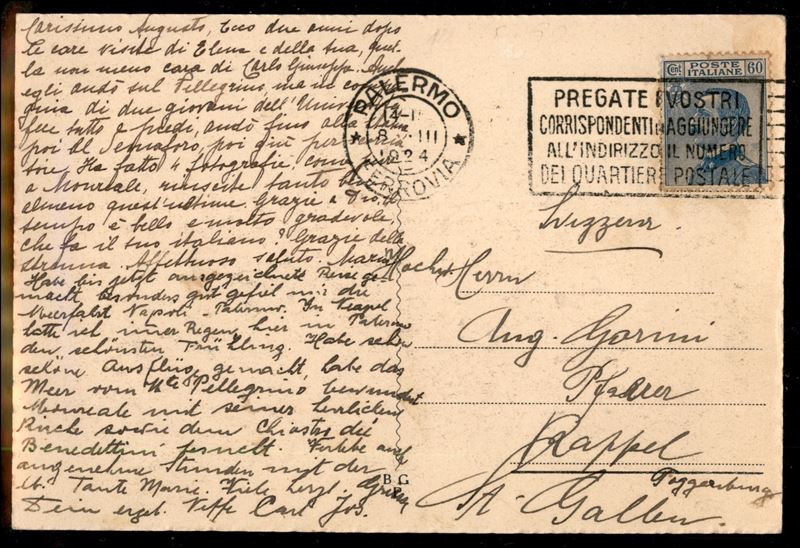 Carissimo Augusto, Ecco due anni dopo
le care visite di Elena e della Sua, quel-
la non meno cara di Carlo Giuseppe. Anch'
egli andò sul Pellegrino, ma in com
gnia di due giovani dell'Univer
fece tutto a piedi, andò fino alla
poi al Semaforo, poi giù per
Ha fatto 4 fotografie, come
a Monreale, riuscite tanto
almeno quest'ultime. Grazie a Dio, il
tempo è bello e molto gradevole,
che fa il suo italiano? Grazie della
strenna. Affettuoso saluto. Maria
Habe bis jetzt ausgezeichnete Reise ge-
macht, besonders gut gefiel mir die
Meerfahrt Napoli - Palermo. In Neapel
hatte ich immer Regen, hier in Palermo
den schönsten Frühling. Habe schon
schöne Ausflüge gemacht, habe das
Meer vom Mte Pellegrino bewundert
Monreale mit seiner herrlichen
Kirche sowie dem Chiostro dei
Benedettini besucht. Verlebe auf
angenehme Stunden mit der
lb. Tante Marie. Viele herzl. Grüsse
Dein ergeb. Neffe Carl Jos.
PALERMO
FERROVIA
8 III
1924
PREGATE I VOSTRI
CORRISPONDENTI DI AGGIUNGERE
ALL'INDIRIZZO IL NUMERO
DEI QUARTIERI POSTALE
Cent. POSTE 60
ITALIANE
Svizzera
Hochw. Herrn
Aug. Gorini
Pfarrer
Kappel
Toggenburg
St. Gallen
B G
P